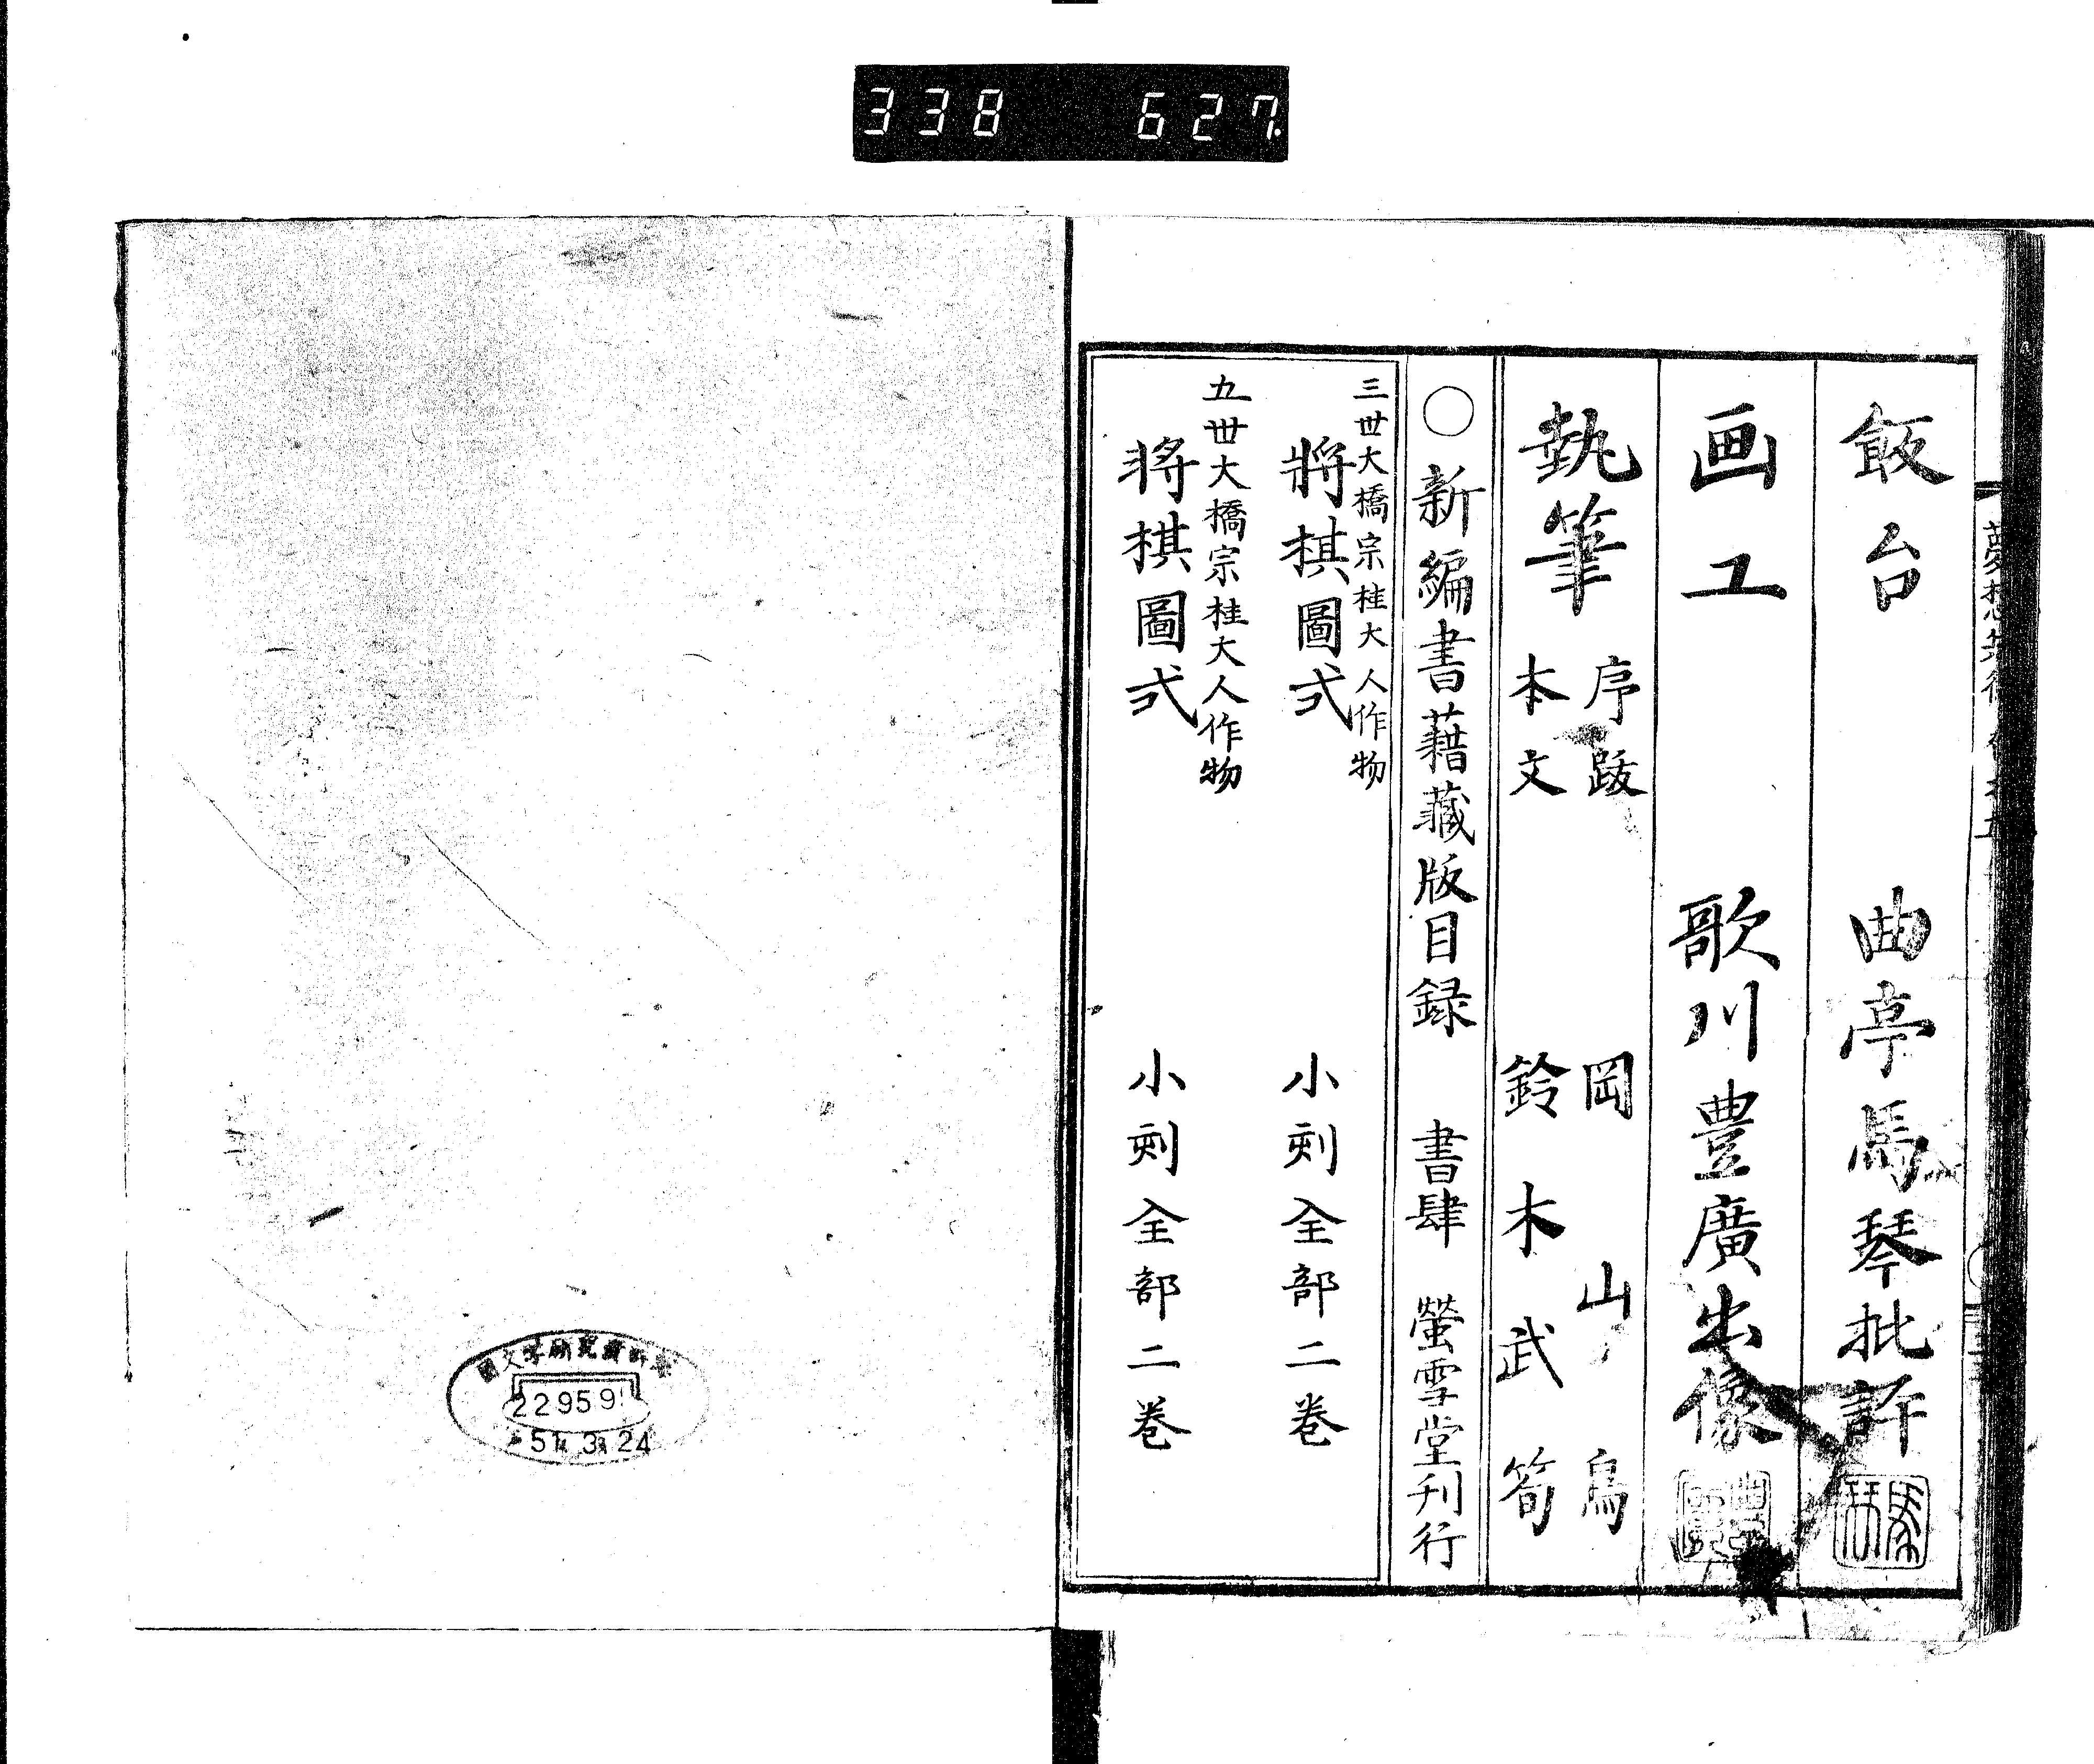 338 627
飯台 曲亭馬琴批評
画工 歌川豊廣出像
執筆
序跋 岡山鳥
本文 鈴木武筍
○新編書藉藏版目録 書肆 螢雪堂刊行
三世大橋宗桂大人作物
將棋圖式 小刻全部二巻
五世大橋宗桂大人作物
將棋圖式 小刻全部二巻
國文学研究資料館
22959
51.3.24